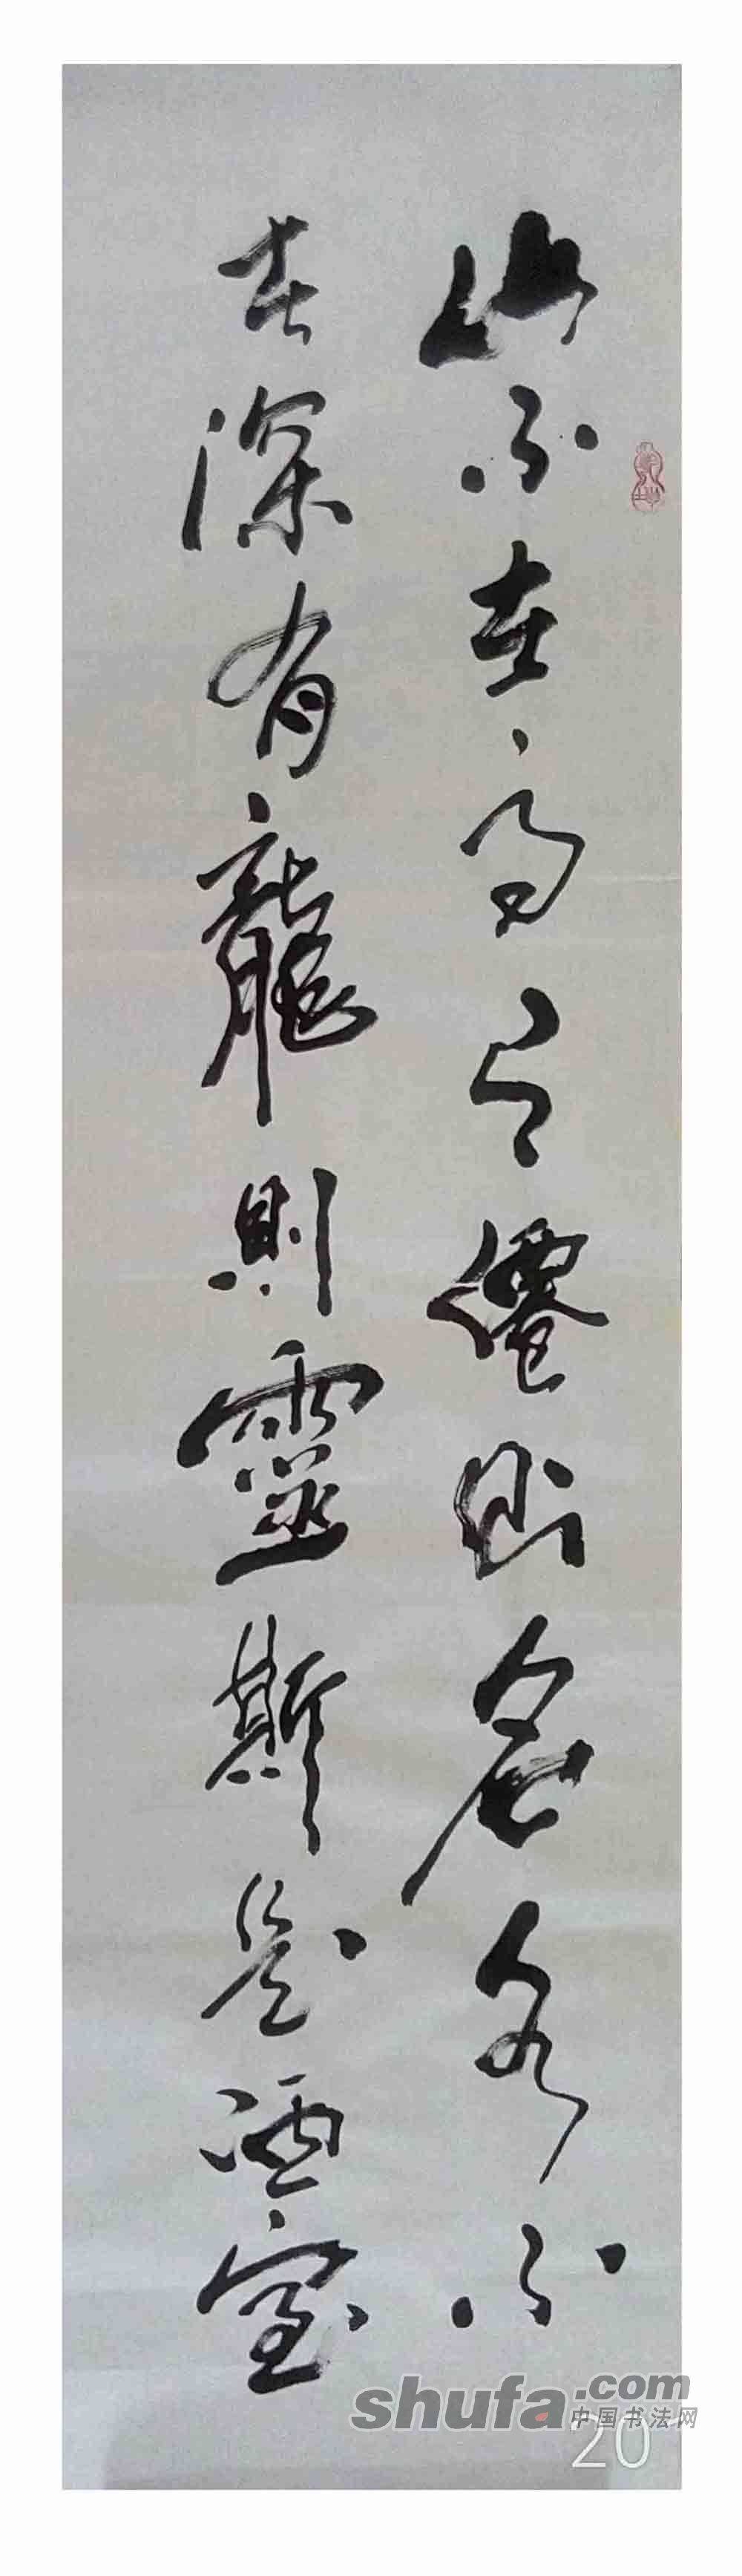 山不在高有僊則名水不
在深有龍則靈斯是陋室
shufa.com
中国书法网
20